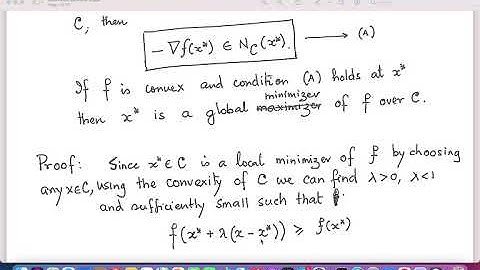 C, then
− ∇f(x*) ∈ N_C(x*). ⟶ (A)
If f is convex and condition (A) holds at x*
minimizer
then x* is a global maximizer of f over C.
Proof: Since x* ∈ C is a local minimizer of f by choosing
any x∈C, using the convexity of C we can find λ>0, λ<1
and sufficiently small such that
f(x* + λ(x − x*)) ⩾ f(x*)